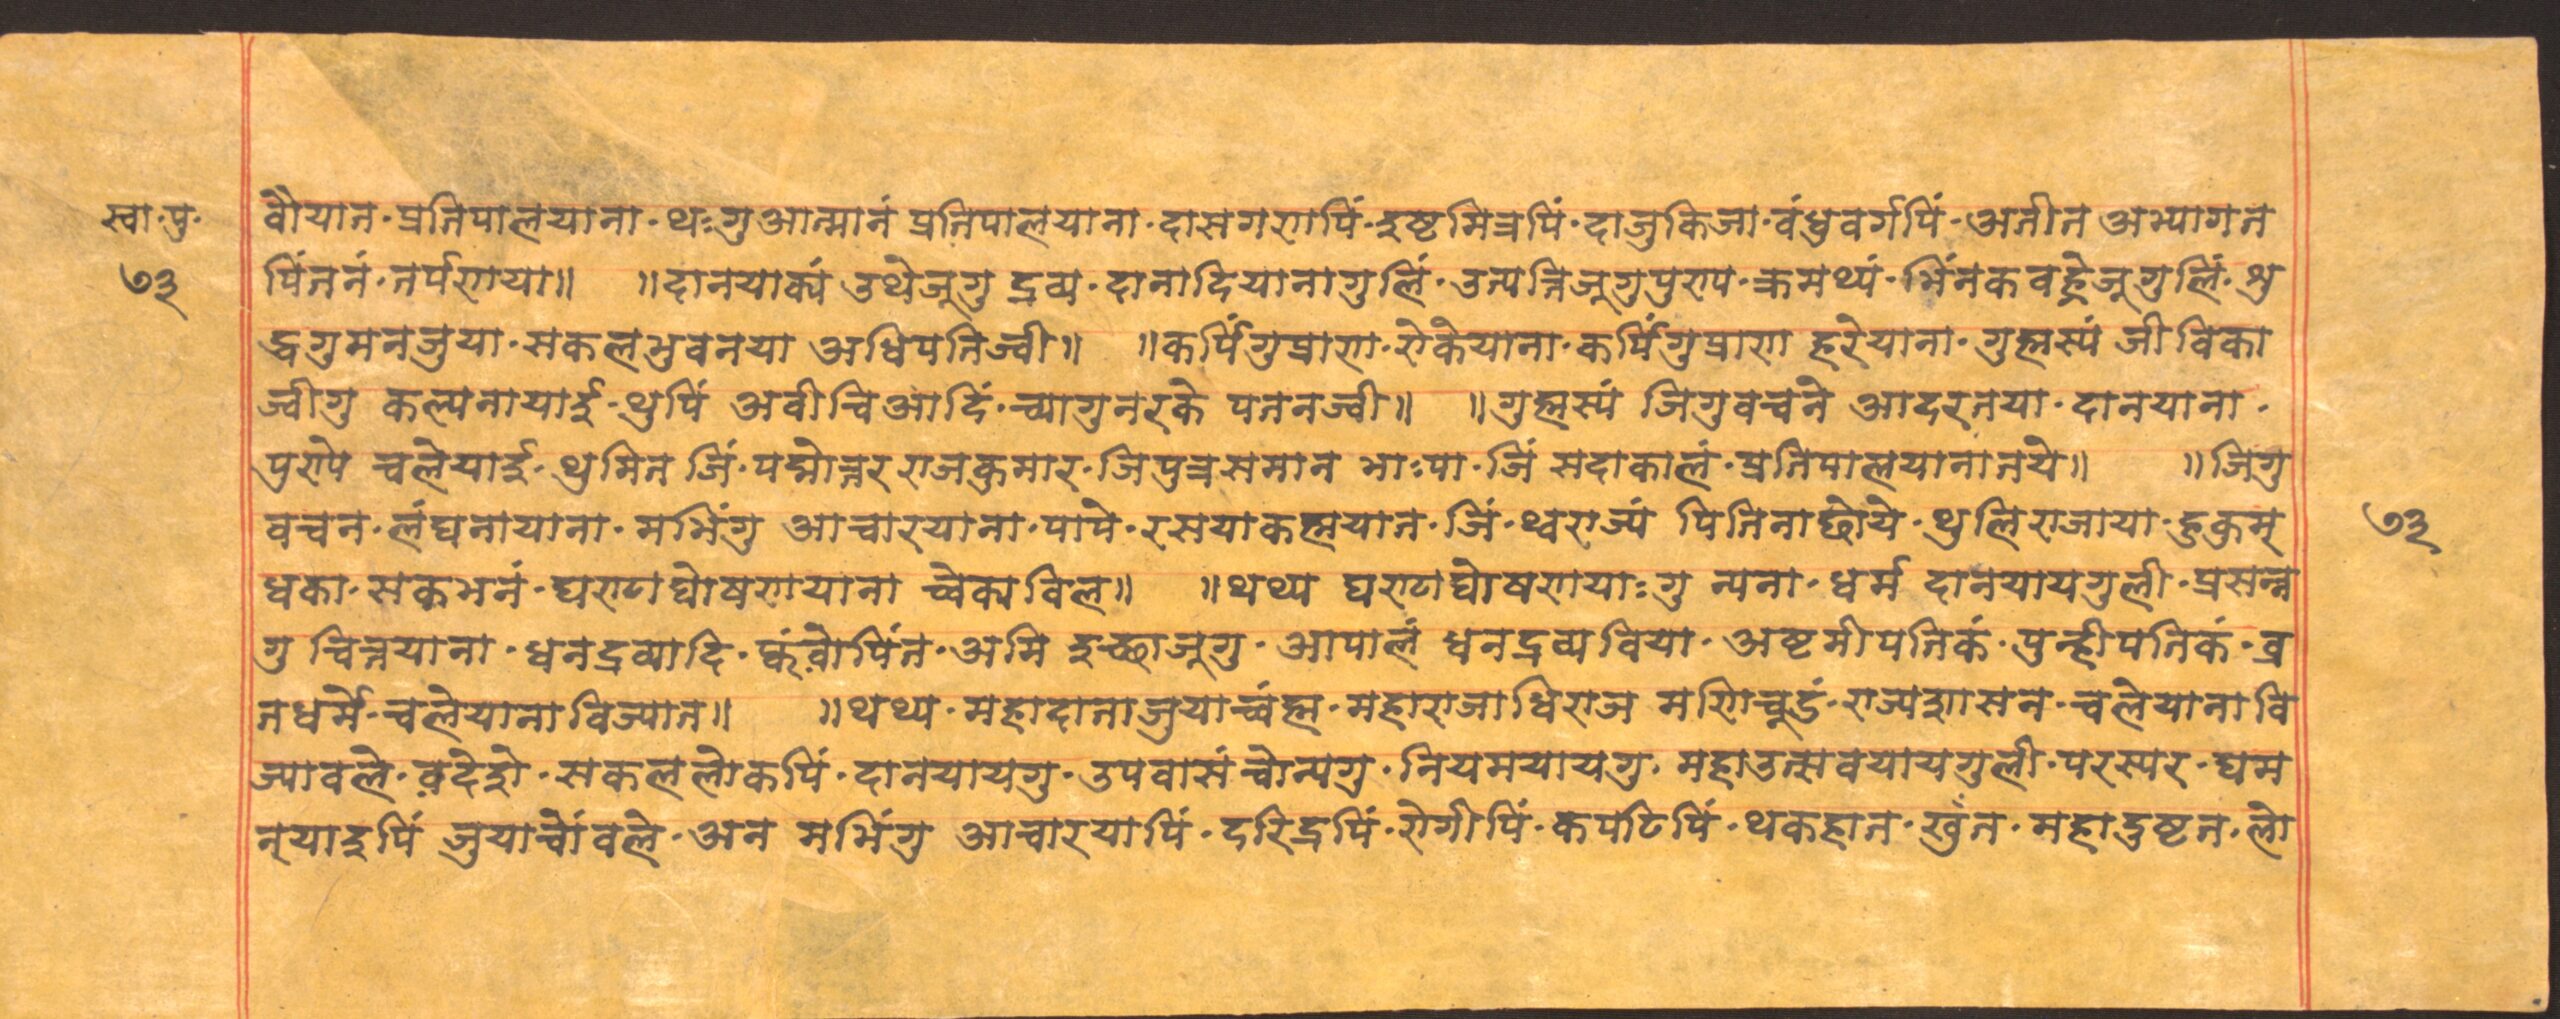 स्वा·पु·
७३
बौयात·प्रतिपालयाना·थःगुआत्मानं प्रतिपालयाना·दासगणपिं·इष्टमित्रपिं·दाजुकिजा·वंधुवर्गपिं·अतीत अभ्यागत
पिंततं·तर्पणया॥ ॥दानयाक्यं उथेजूगु द्रव्य·दानादियानागुलिं·उत्पत्तिजूगुपुण्य·क्रमथ्यं·भिंनकवहेजूगुलिं·शु
द्धगुमनजुया·सकलभुवनया अधिपतिज्वी॥ ॥कपिंगुप्राण·रोकेयाना·कपिंगुप्राण हरेयाना·गुह्मस्यं जीविका
ज्वीगु कल्पनायाई·थुपिं अवीचिआदिं·च्यागुनरके पतनज्वी॥ ॥गुह्मस्यं जिगुवचने आदरतया·दानयाना·
पुण्ये चलेयाई·थुमित जिं·पद्मोत्तर राजकुमार·जिपुत्रसमान भाःपा·जिं सदाकालं·प्रतिपालयानातये॥ ॥जिगु
वचन·लंघनायाना·मभिंगु आचारयाना·पापे·रसयाकह्मयात·जिं·थ्वराज्यं पितिनाछोये·थुलि राजाया·हुकुम्
७३
धका·सकभनं·घण्टाघोषणयाना च्वेकाविल॥ ॥थथ्य घण्टाघोषणयाःगु न्यना·धर्म दानयायगुली·प्रसन्न
गु चित्तयाना·धनद्रव्यादि·फ्वंवोपिंत·अमि इच्छाजूगु·आपालं धनद्रव्यविया·अष्टमीपतिकं·पुन्हीपतिकं·व्र
तधर्मे·चलेयानाविज्यात॥ ॥थथ्य·महादानाजुयाच्वंह्म·महाराजाधिराज मणिचूडं·राज्यशासन·चलेयानावि
ज्यावले·वदेशे·सकललोकपिं·दानयायगु·उपवासंच्वोन्यगु·नियमयायगु·महाउत्सवयायगुली·परस्पर·घम
न्याइपिं जुयाच्वोंवले·अन मभिंगु आचारयापिं·दरिद्रपिं·रोगीपिं·कपटिपिं·थकहात·खुंत·महादुष्टत·लो